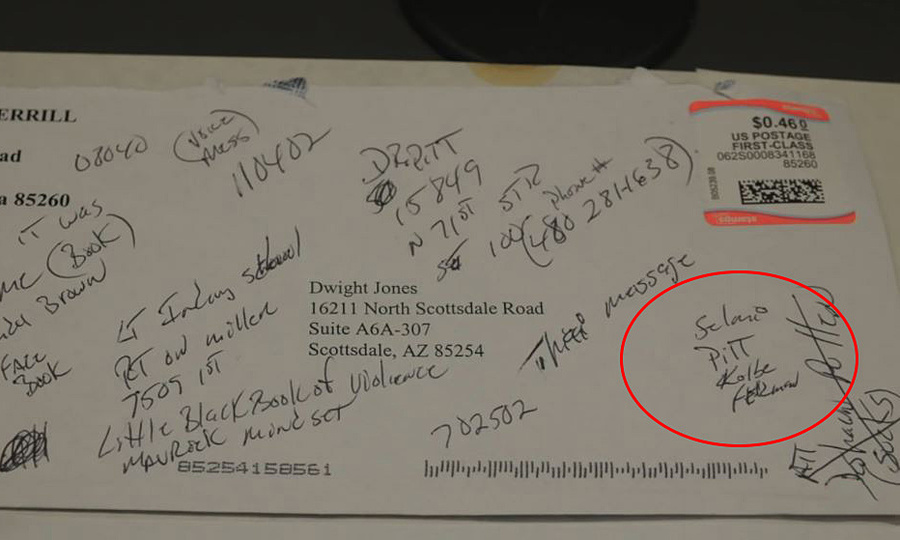 ERRILL
ad
a 85260
03040
(Voice
Mess)
110402
DR PITT
15849
N 71ST STR
100
phone #
(480 281-1638)
$0.46
US POSTAGE
FIRST-CLASS
062S0008341168
85260
IT was
me (Book)
Brown
FACE
BOOK
LT Indian school
RT on miller
7509 1ST
Little Black Book of Violence
MAUROCK mindset
Dwight Jones
16211 North Scottsdale Road
Suite A6A-307
Scottsdale, AZ 85254
message
702502
PITT
Kolbe
85254158561